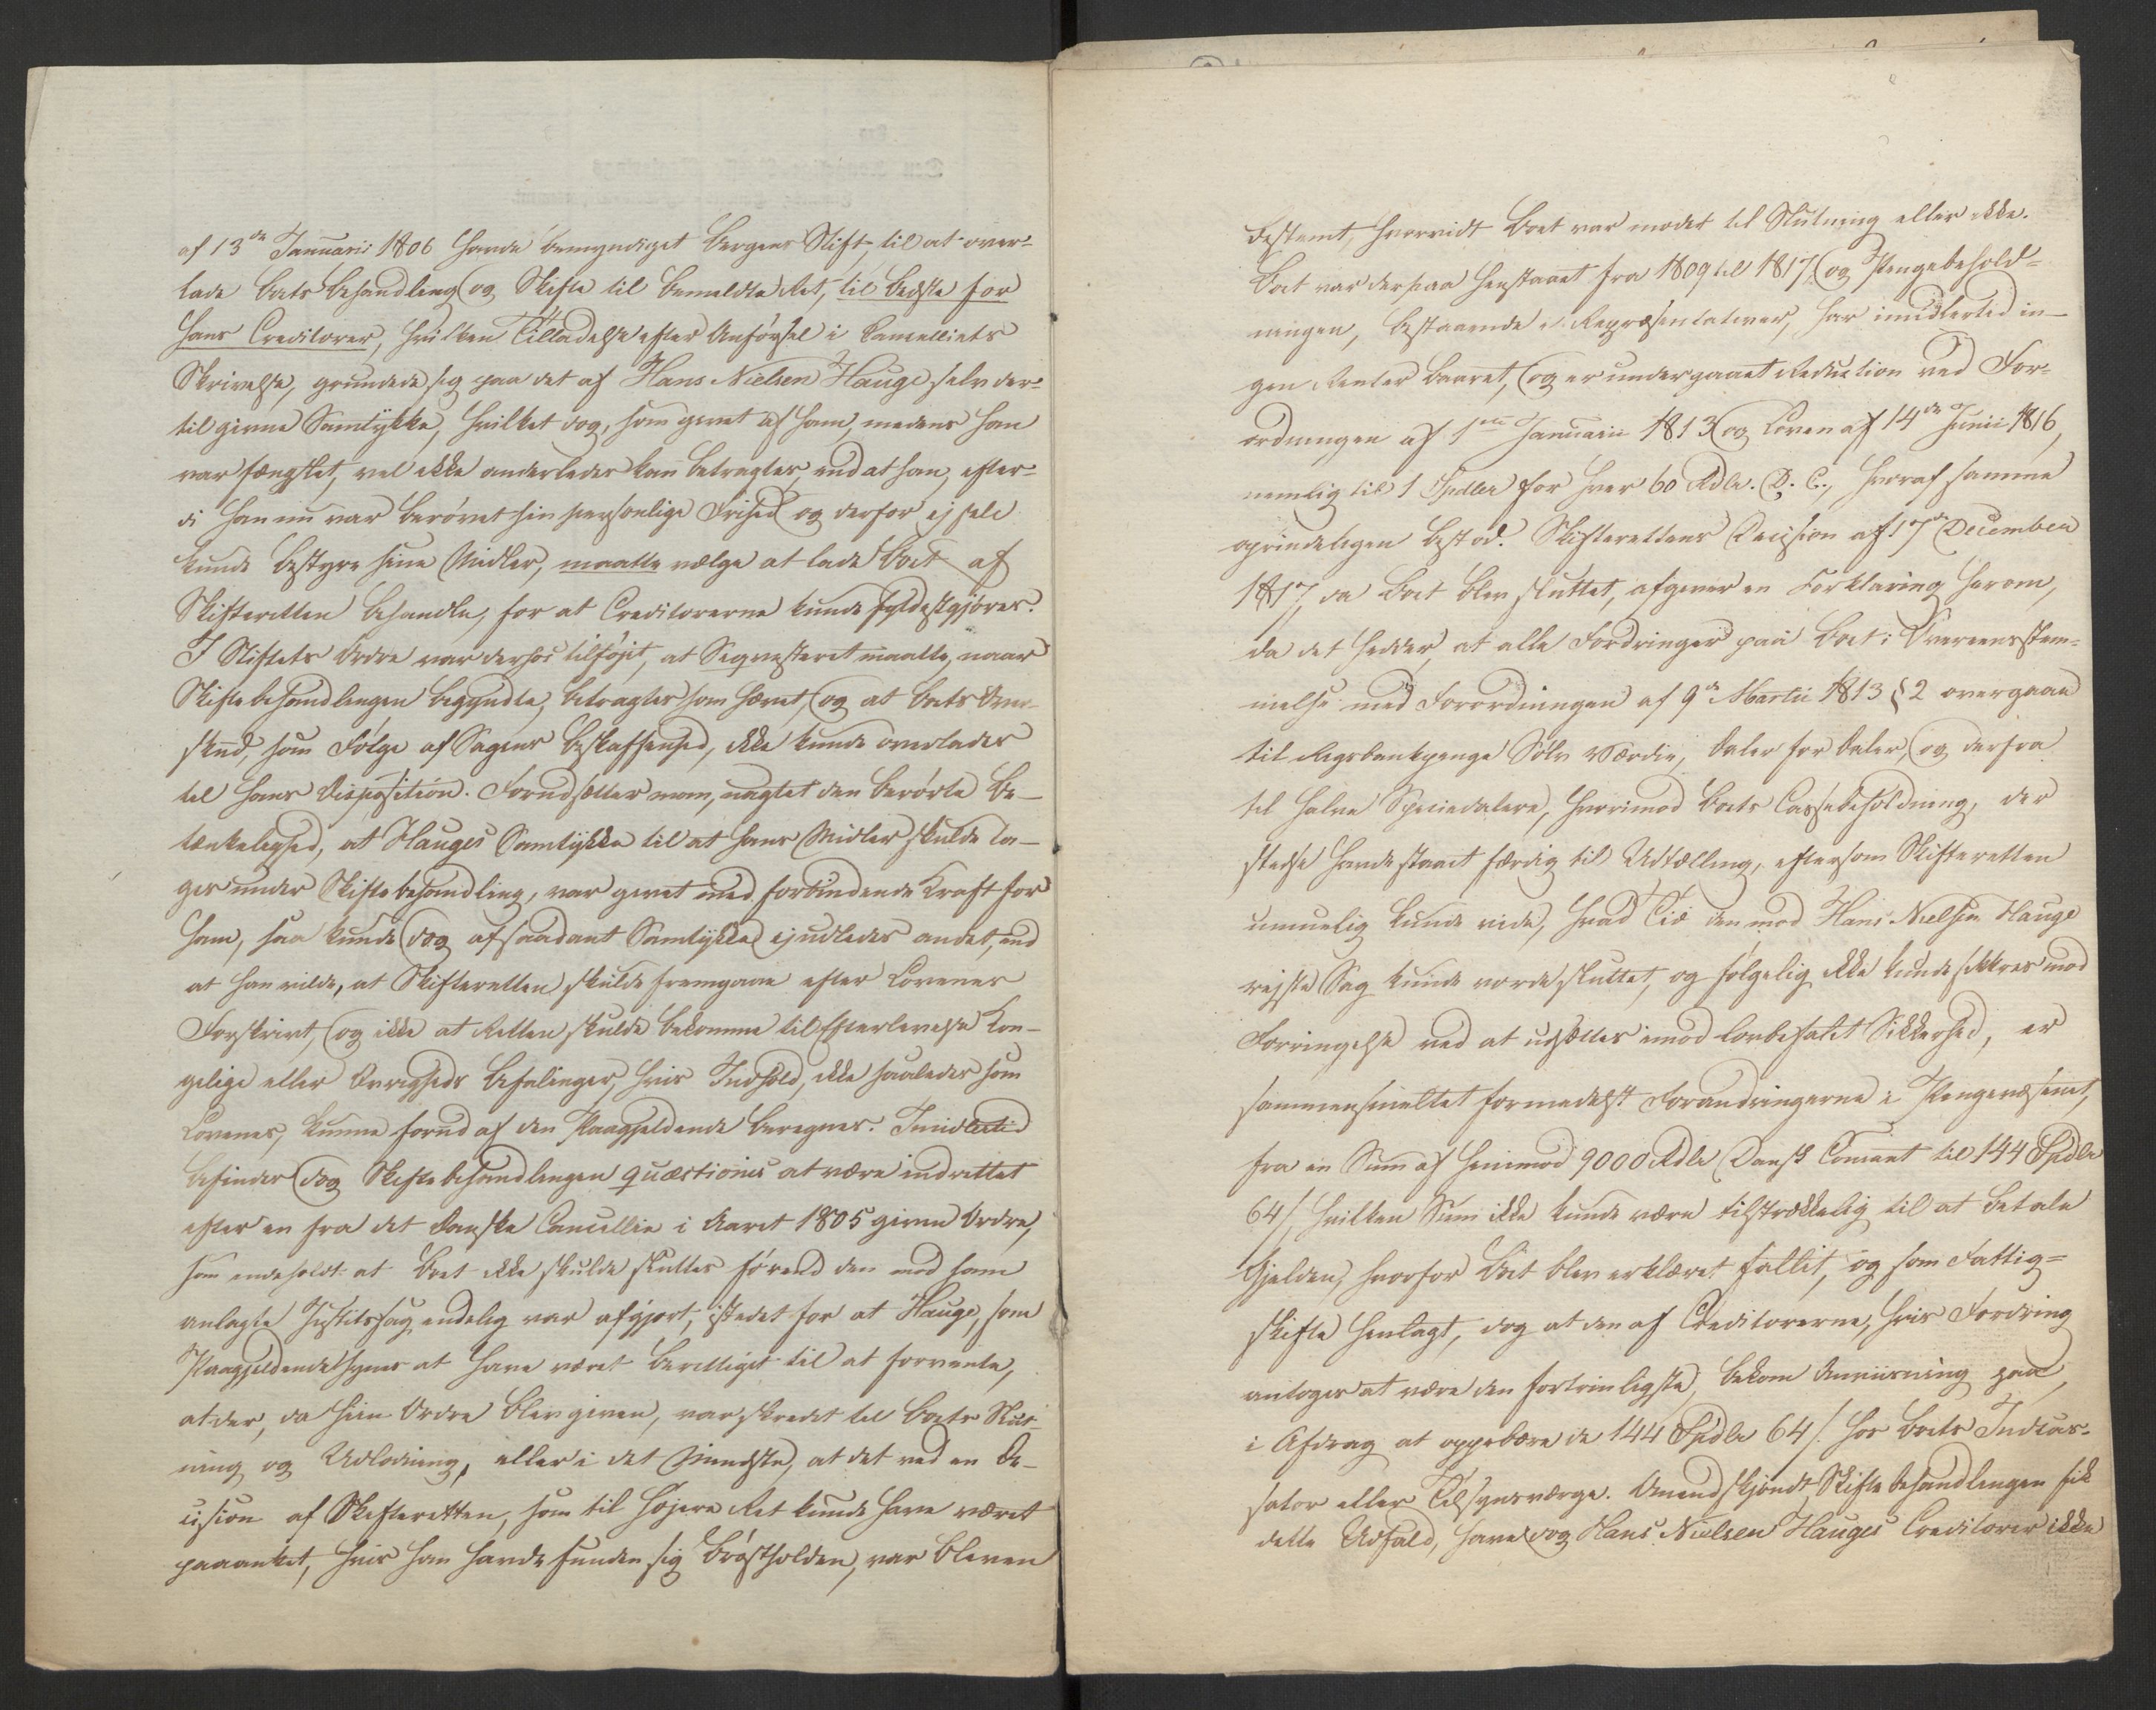 af 13de Januarii 1806 havde bemyndiget Bergens Stift, til at over-
lade Boets Behandling og Skifte til bemeldte Ret, til bedste for
hans Creditorer, hvilken Tilladelse efter Anførsel i Cancelliets
Skrivelse, grundede sig paa det af Hans Nielsen Hauge selv der-
til givne Samtykke, hvilket dog, som givet af ham, medens han
var fængslet, vel ikke anderledes kan betragtes, end at han, efter-
di han nu var berøvet sin personlige Frihed og derfor ej selv
kunde bestyre sine Midler, maatte vælge at lade Boet af
Skifteretten behandle, for at Creditorerne kunde fyldestgjøres.
I Stiftets Ordre var derhos tilføjet, at Seqvesteret maatte, naar
Skiftebehandlingen begyndte, betragtes som hævet, og at Boets Over-
skud, som Følge af Sagens Beskaffenhed, ikke kunde overlades
til hans Disposition. Forudsætter man, uagtet den berørte Be-
tænkelighed, at Hauges Samtykke til at hans Midler skulde ta-
ges under Skiftebehandling, var givet med forbindende Kraft for
ham, saa kunde dog af saadant Samtykke ej udledes andet, end
at han vilde, at Skifteretten skulde fremgaae efter Lovenes
Forskrivt, og ikke at Retten skulde bekomme til Efterlevelse Kon-
gelige eller Øvrigheds Befalinger, hvis Indhold, ikke saaledes som
Lovenes, kunne forud af den Paagjeldende beregnes. Imidlertid
befindes dog Skiftebehandlingen quæstionis at være indrettet
efter en fra det danske Cancellie i Aaret 1805 given Ordre,
som indeholdt: at Boet ikke skulde sluttes førend den mod ham
anlagte Justitssag endelig var afgjort, istedet for at Hauge, som
Paagjeldende synes at have været berettiget til at forvente,
at der, da hiin Ordre blev given, var skredet til Boets Slut-
ning og Udlodning, eller i det Mindste, at det ved en De-
cision af Skifteretten, som til højere Ret kunde have været
paaanket, hvis han havde funden sig brøstholden, var bleven
bestemt, hvorvidt Boet var modet til Slutning eller ikke.
Boet var derpaa henstaaet fra 1809 til 1817, og Pengebehold-
ningen, bestaaende i Repræsentativer, har imidlertid in-
gen Renter baaret, og er undergaaet Reduction ved For-
ordningen af 5te Januarii 1813 og Loven af 14de Junii 1816,
nemlig til 1 Spdler for hver 60 Rdlr. D. C., hvoraf samme
oprindeligen bestod. Skifterettens Decision af 17de December
1817, da Boet blev sluttet, afgiver en Forklaring herom,
da det hedder, at alle Fordringer paa Boet i Overeensstem-
melse med Forordningen af 9de Martii 1813 § 2 overgaae
til Rigsbankpenge Sølv Værdie, Daler for Daler, og derfra
til halve Speciedalere, hvorimod Boets Cassebeholdning, der
stedse havde staaet færdig til Udtælling, eftersom Skifteretten
umuelig kunde vide, hvad Tid den mod Hans Nielsen Hauge
rejste Sag kunde vorde sluttet, og følgelig ikke kunde sikkres mod
Forringelse ved at udsættes imod lovbefalet Sikkerhed, er
sammensmeltet formedelst Forandringerne i Pengevæsenet,
fra en Sum af henimod 9000 Rdlr Dansk Courant til 144 Spdlr
64 ß, hvilken Sum ikke kunde være tilstrækkelig til at betale
Gjelden, hvorfor Boet blev erklæret fallit, og som Fattig-
skifte henlagt, dog at den af Creditorerne, hvis Fordring
antoges at være den fortrinligste, bekom Anviisning paa,
i Afdrag at oppebære de 144 Spdlr 64 ß. hos Boets Incas-
sator eller Tilsynsværge. Uuendskjøndt Skiftebehandlingen fik
dette Udfald, have dog Hans Nielsen Hauges Creditorer ikke